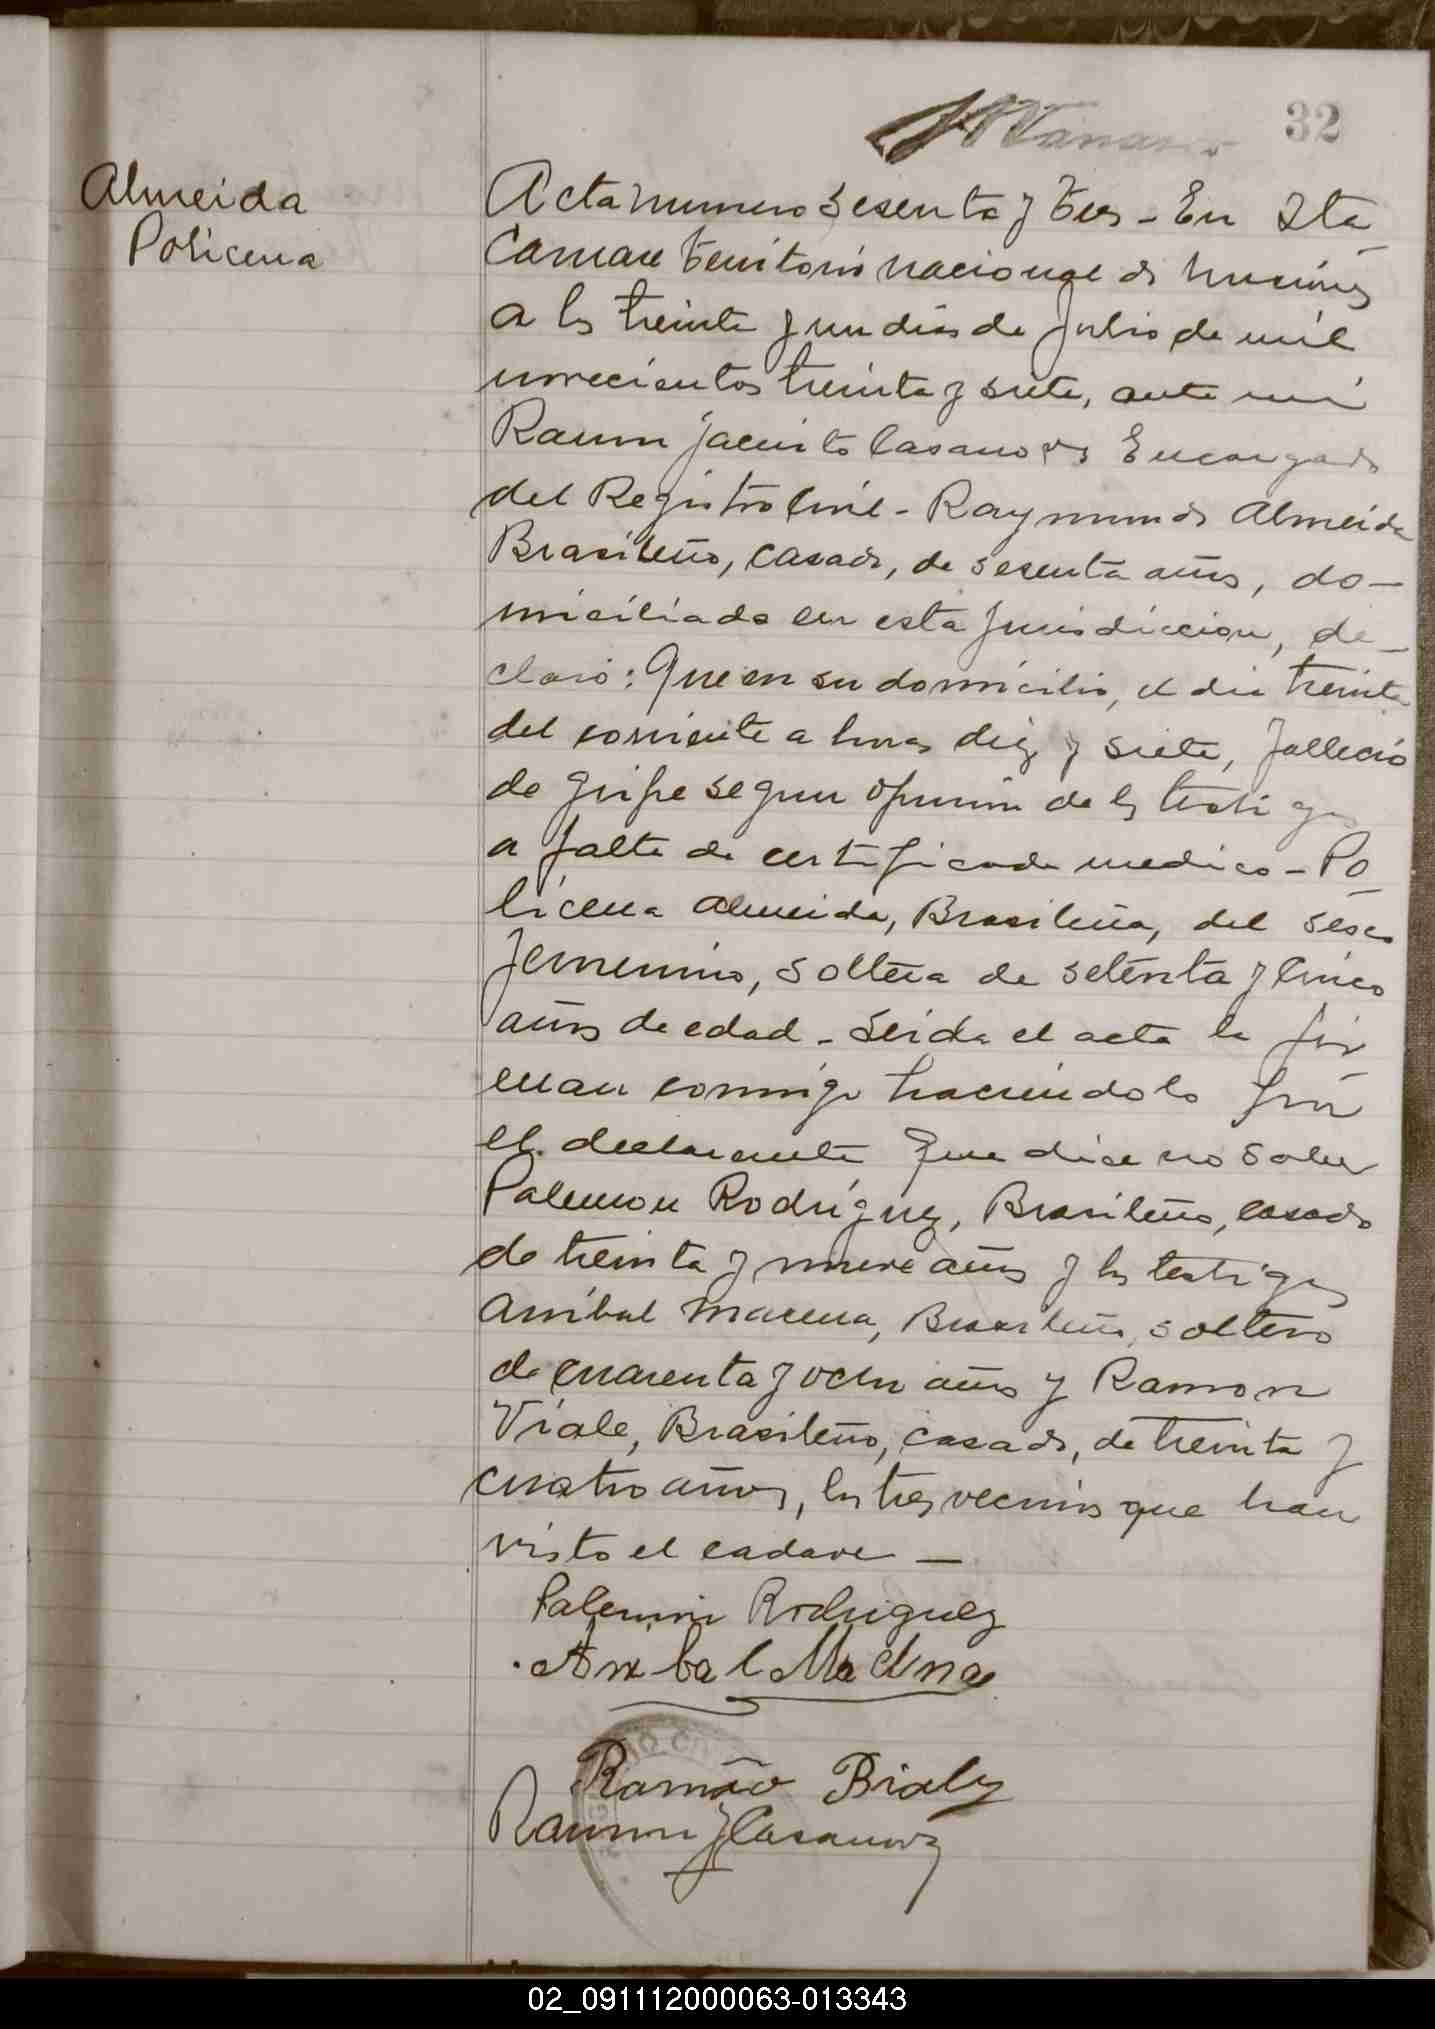 32
Almeida
Policena
Acta numero sesenta y tres - En Ita
Caruare territorio nacional de Misiones
a los treinta y un dias de Julio de mil
novecientos treinta y siete, ante mi
Ramon Jacinto Casanova Encargado
del Registro Civil - Raymundo Almeida
Brasileño, casado, de sesenta años, do-
miciliado en esta jurisdiccion, de-
claro: Que en su domicilio, el dia treinta
del corriente a horas diez y siete, fallecio
de gripe segun opinion de los testigos
a falta de certificado medico - Po-
licena Almeida, Brasileña, del sexo
femenino, soltera de setenta y cinco
años de edad - Leida el acta la fir
man conmigo haciendolo por
el declarante que dice no saber
Palemon Rodriguez, Brasileño, casado
de treinta y nueve años y los testigos
Anibal Marena, Brasileño, soltero
de cuarenta y ocho años y Ramon
Viale, Brasileño, casado, de treinta y
cuatro años, los tres vecinos que han
visto el cadaver -
Palemon Rodriguez
Anibal Madena
Ramão Bialy
Ramon J Casanova
02_091112000063-013343